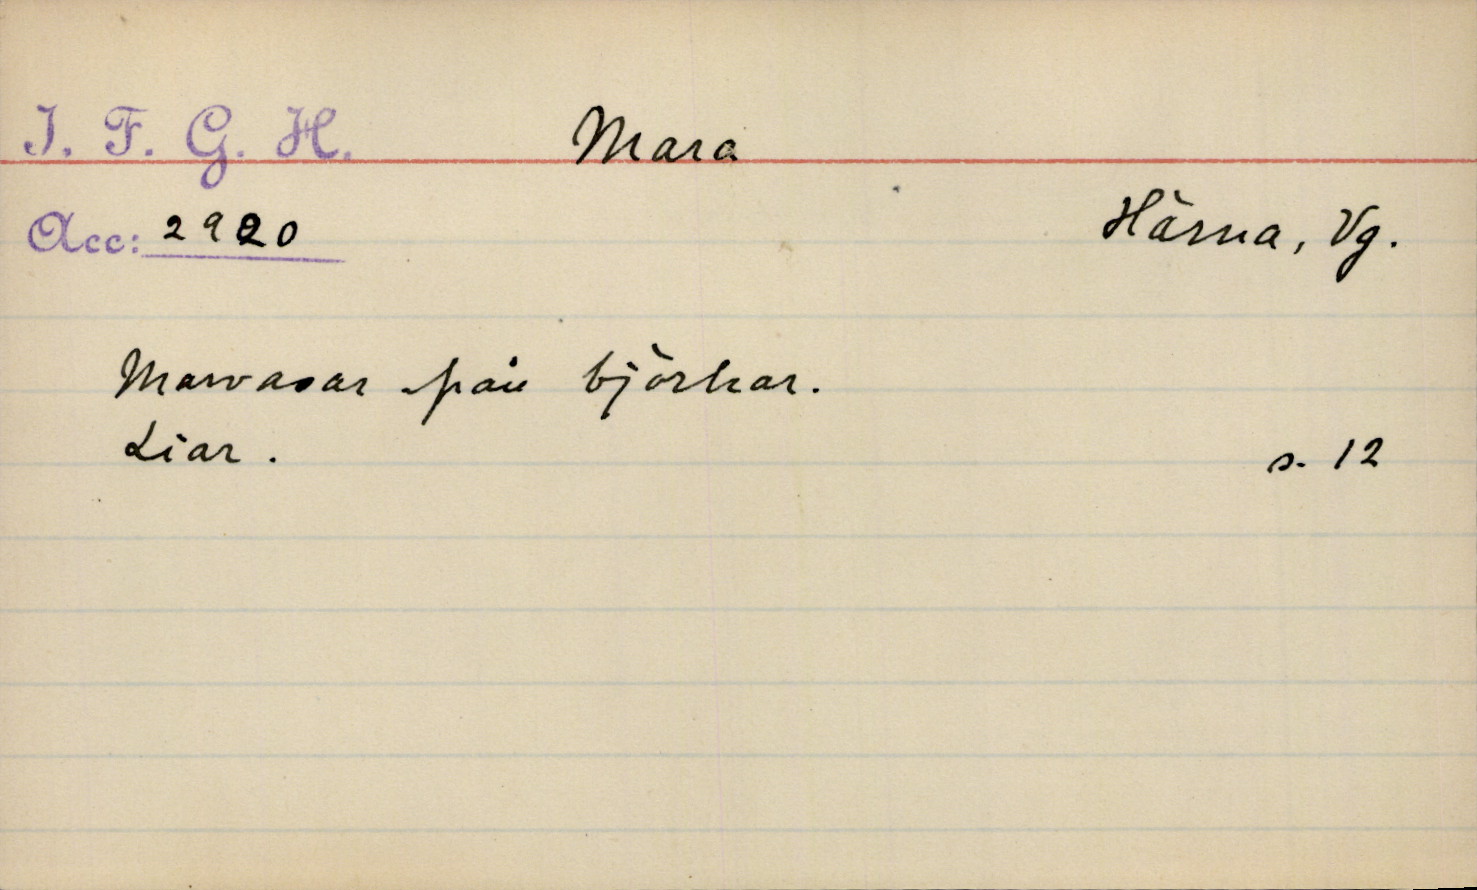 I. F. G. H. Mara
Acc: 2920
Härna, Vg.
Marvasar från björkar.
Liar. s. 12